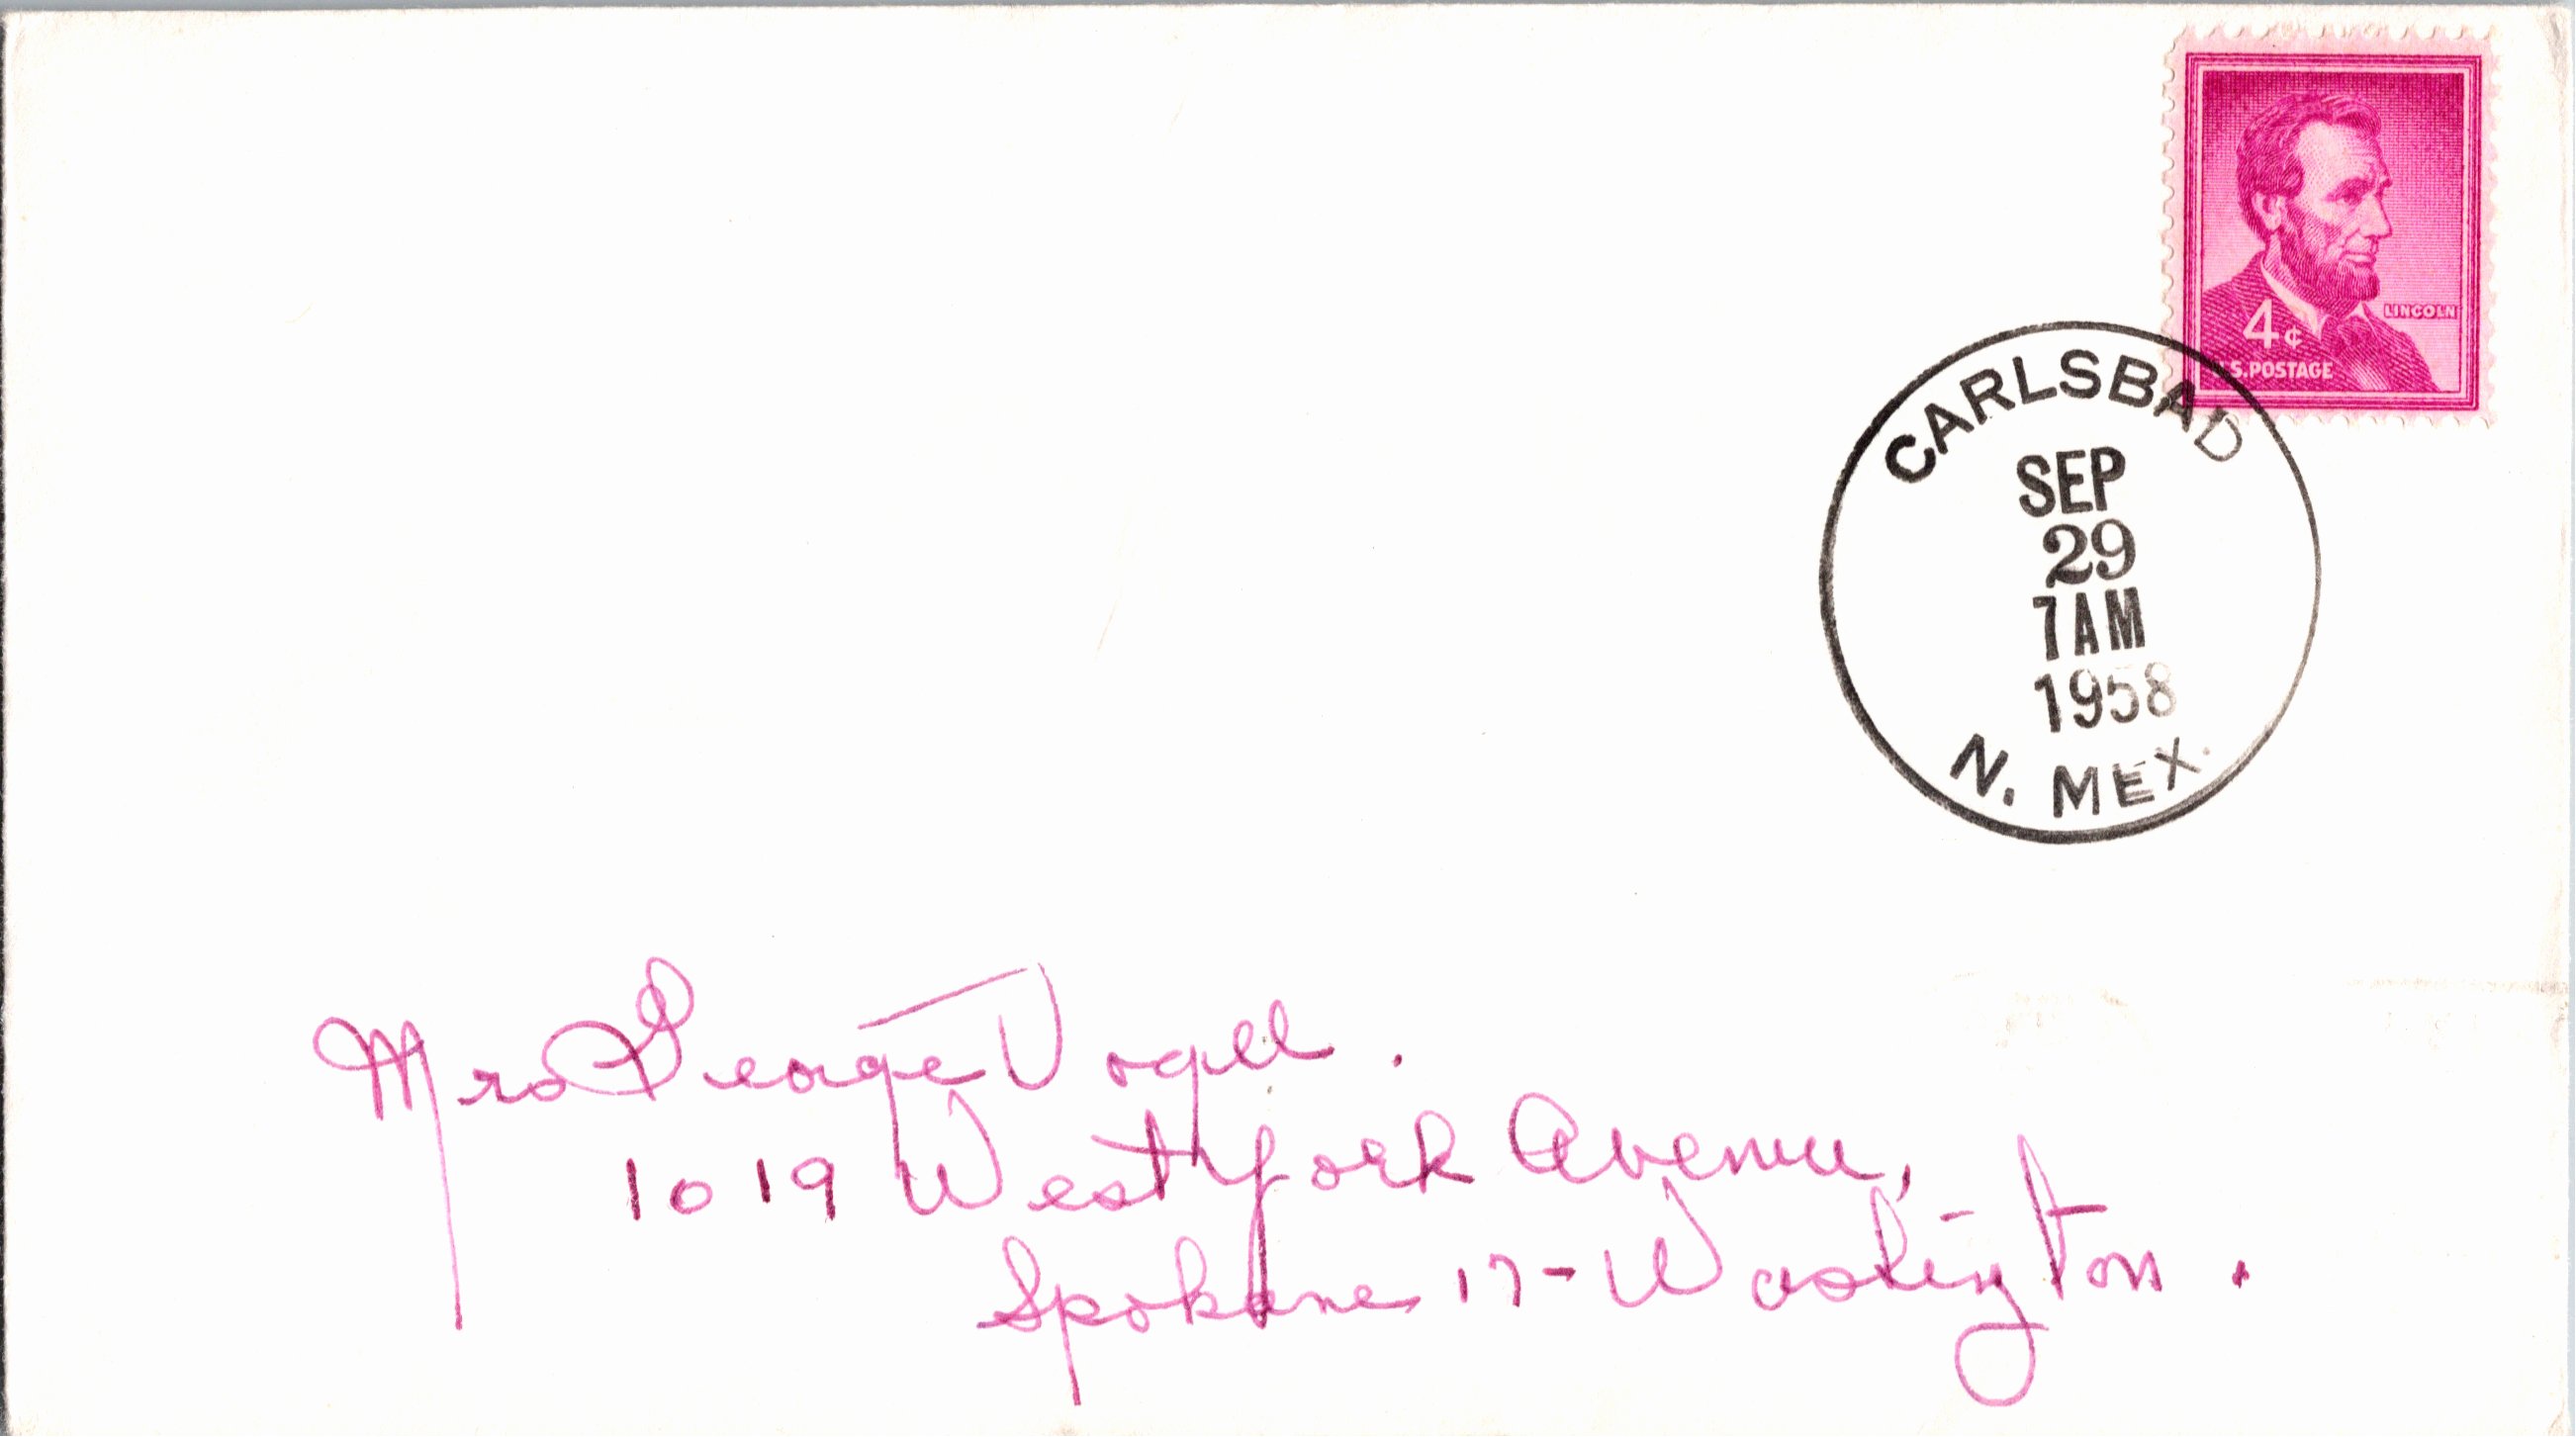 LINCOLN
4¢
S. POSTAGE
CARLSBAD
SEP
29
7AM
1958
N. MEX.
Mrs George Vogel.
1019 West York Avenue,
Spokane 17- Washington.